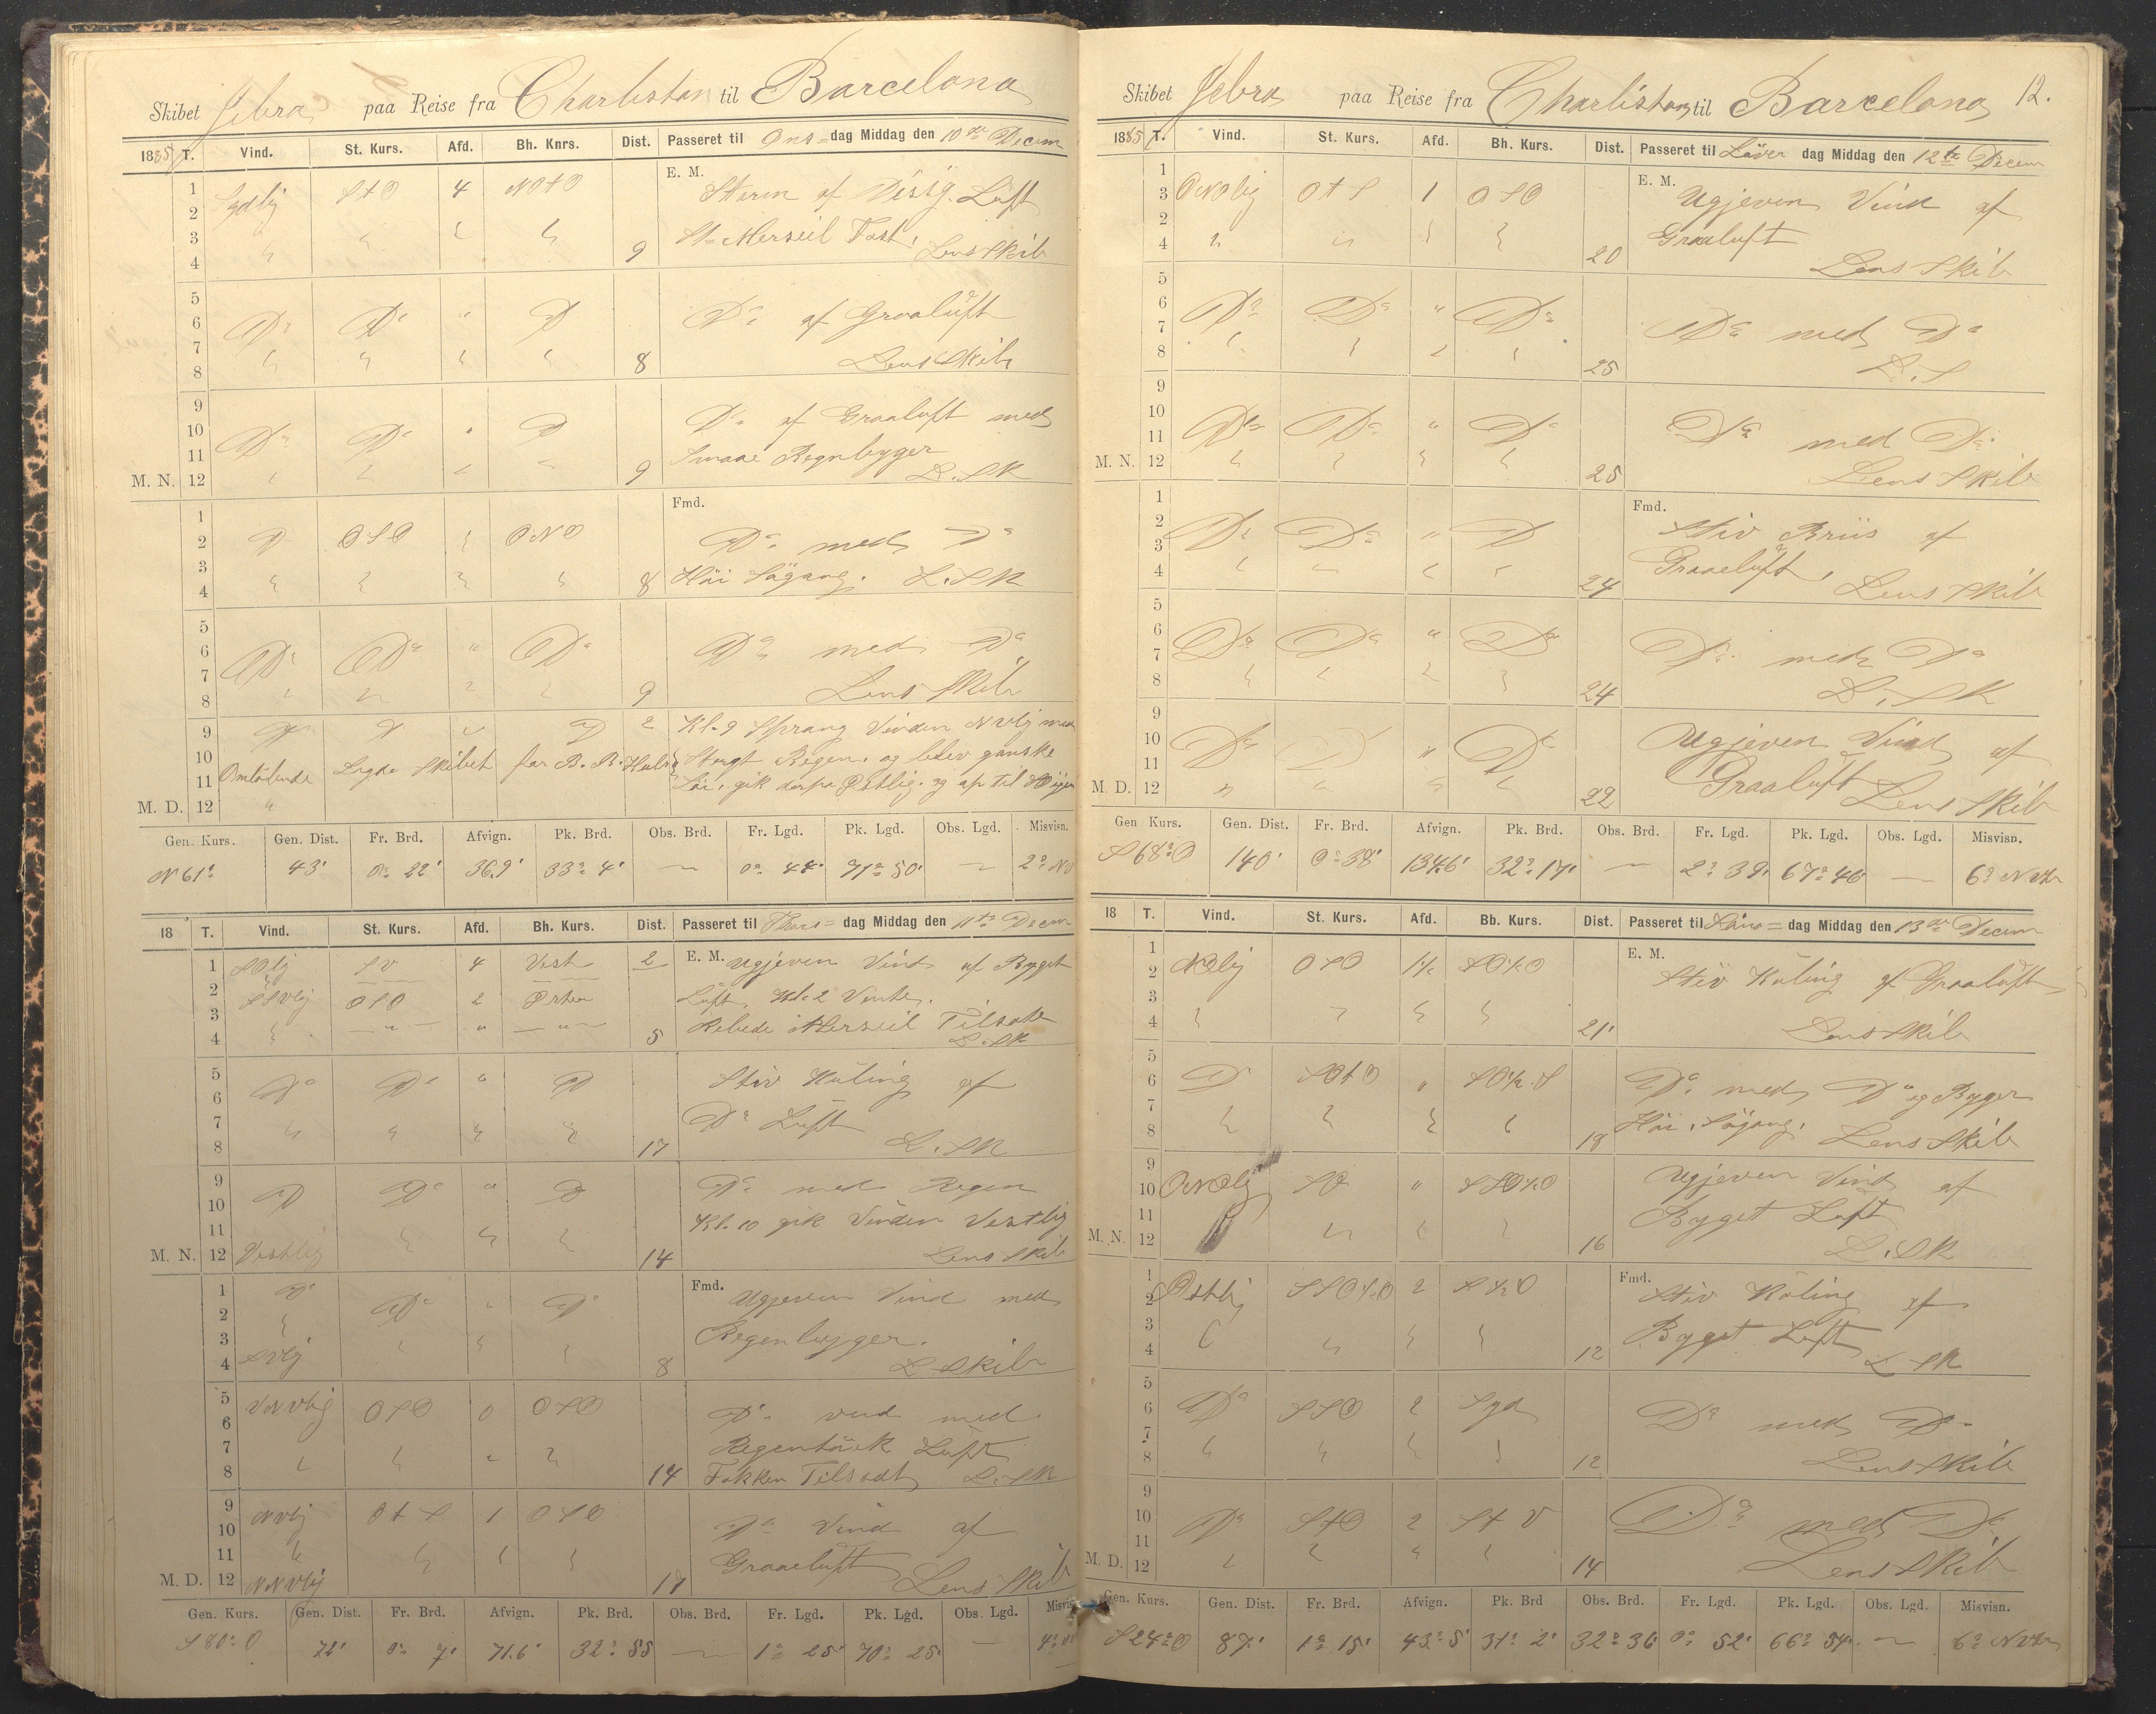 Skibet Jebra paa Reise fra Charlistan til Barcelona
1885 T. Vind. St. Kurs. Afd. Bh. Knrs. Dist. Passeret til Ons= dag Middag den 10de Decem
E. M.
1 2 Sydlig StO 4 NOtO Storm af Disig. Luft
3 4 9 St= Merseil Fast, Lens Skib
5 6 Do Do " D Do af Graaluft
7 8 8 Lens Skib
9 10 Do Do " D Do af Graaluft med
11 Smaae Regnbyger
M. N. 12 9 L. SK
Fmd.
1 2 D OSO ONO Do med Do
3 4 8 Höi Sögang. L. SK
5 6 Do Do " Do Do med Do
7 8 9 Lens Skib
9 D D D 2 Kl. 9 Sprang Vinden NVlig med
10 11 Omlöbende Lagde Skibet for B. B. Hals Stergt Regen. og blev ganske
M. D. 12 Löi. gik derpa Östlig. og op til
Gen. Kurs. Gen. Dist. Fr. Brd. Afvign. Pk. Brd. Obs. Brd. Fr. Lgd. Pk. Lgd. Obs. Lgd. Misvisn.
N 61° 43' 0° 22' 36.9' 33° 4' — 0° 44' 71° 50' — 2° NV
18 T. Vind. St. Kurs. Afd. Bh. Kurs. Dist. Passeret til Thors= dag Middag den 11te Decem
1 SOlig SV 4 Vest 2 E. M. Ugjeven Vind af Byget
2 SSVlig OSO 2 Östen Luft, Kl. 2 Vente.
3 4 " " " 5 Rebede Merseil Tilsat
L. SK
5 6 Do Do " D Stiv Kuling af
7 Do Luft
8 17 L. SK
9 10 D Do " D Do med Regen
11 Kl. 10 gik Vinden Vestlig
M. N. 12 Vestlig 14 Lens Skib
Fmd.
1 2 Do Do " D Ugjeven Vind med
3 Regenbygger.
4 SVlig 8 L. Skib
5 6 VNVlig OSO 0 OSO Do vind med
7 Regentöick Luft
8 14 Fokken Tilsadt L. SK
9 10 NVlig OtS 1 OSO Do Vind af
11 Graaeluft
M. D. 12 NNVlig 17 Lens Skib
Gen. Kurs. Gen. Dist. Fr. Brd. Afvign. Pk. Brd. Obs. Brd. Fr. Lgd. Pk. Lgd. Obs. Lgd. Misvisn.
S 80° O 72' 0° 7' 71.6' 32° 55 — 1° 25' 70° 25' — 4°
Skibet Jebra paa Reise fra Charlistan til Barcelona 12.
1885 T. Vind. St. Kurs. Afd. Bh. Kurs. Dist. Passeret til Löver dag Middag den 12te Decem
E. M.
1 3 ONOlig OtS 1 OSO Ugjeven Vind af
2 Graaluft
4 20 Lens Skib
5 6 Do Do " Do
7 Do med Do
8 25 L. S
9 10 Do Do " Do
11 Do med Do
M. N. 12 25 Lens Skib
Fmd.
1 2 Do Do " D Stiv Briis af
3 Graaeluft,
4 24 Lens Skib
5 6 Do Do " Do
7 Do med Do
8 24 L. SK
9 10 Do D " Do Ugjeven Vind af
11 Graaluft
M. D. 12 22 Lens Skib
Gen Kurs. Gen. Dist. Fr. Brd. Afvign. Pk. Brd. Obs. Brd. Fr. Lgd. Pk. Lgd. Obs. Lgd. Misvisn.
S 68° O 140' 0° 38' 134.6' 32° 17' — 2° 39' 67° 46 — 6°
18 T. Vind. St. Kurs. Afd. Bb. Kurs. Dist. Passeret til Sön= dag Middag den 13de Decem
E. M.
1 2 NOlig OSO 1½ SO½O Stiv Kuling af Graaluft
3 4 21' Lens Skib
5 6 D SOtO " SO½S Do med Do og Byger
7 8 18 Höi, Sögang, Lens Skib
9 10 ONOlig SO " SSO½O Ugjeven Vind af
11 Byget Luft
M. N. 12 16 L. SK
Fmd.
1 2 Östlig SSO½O 2 S½O Stiv Kuling af
3 Byget Luft
4 12 L SK
5 6 Do SSO 2 Syd Do med Do
7 8 12 Lens Skib
9 10 Do StO 2 St V Do med Do
11
M. D. 12 14 Lens Skib
Gen. Kurs. Gen. Dist. Fr. Brd. Afvign. Pk. Brd Obs. Brd. Fr. Lgd. Pk. Lgd. Obs. Lgd. Misvisn.
S 24° O 87' 1° 15' 43° 5' 31° 2' 32° 36' 0° 52' 66° 54' — 6°